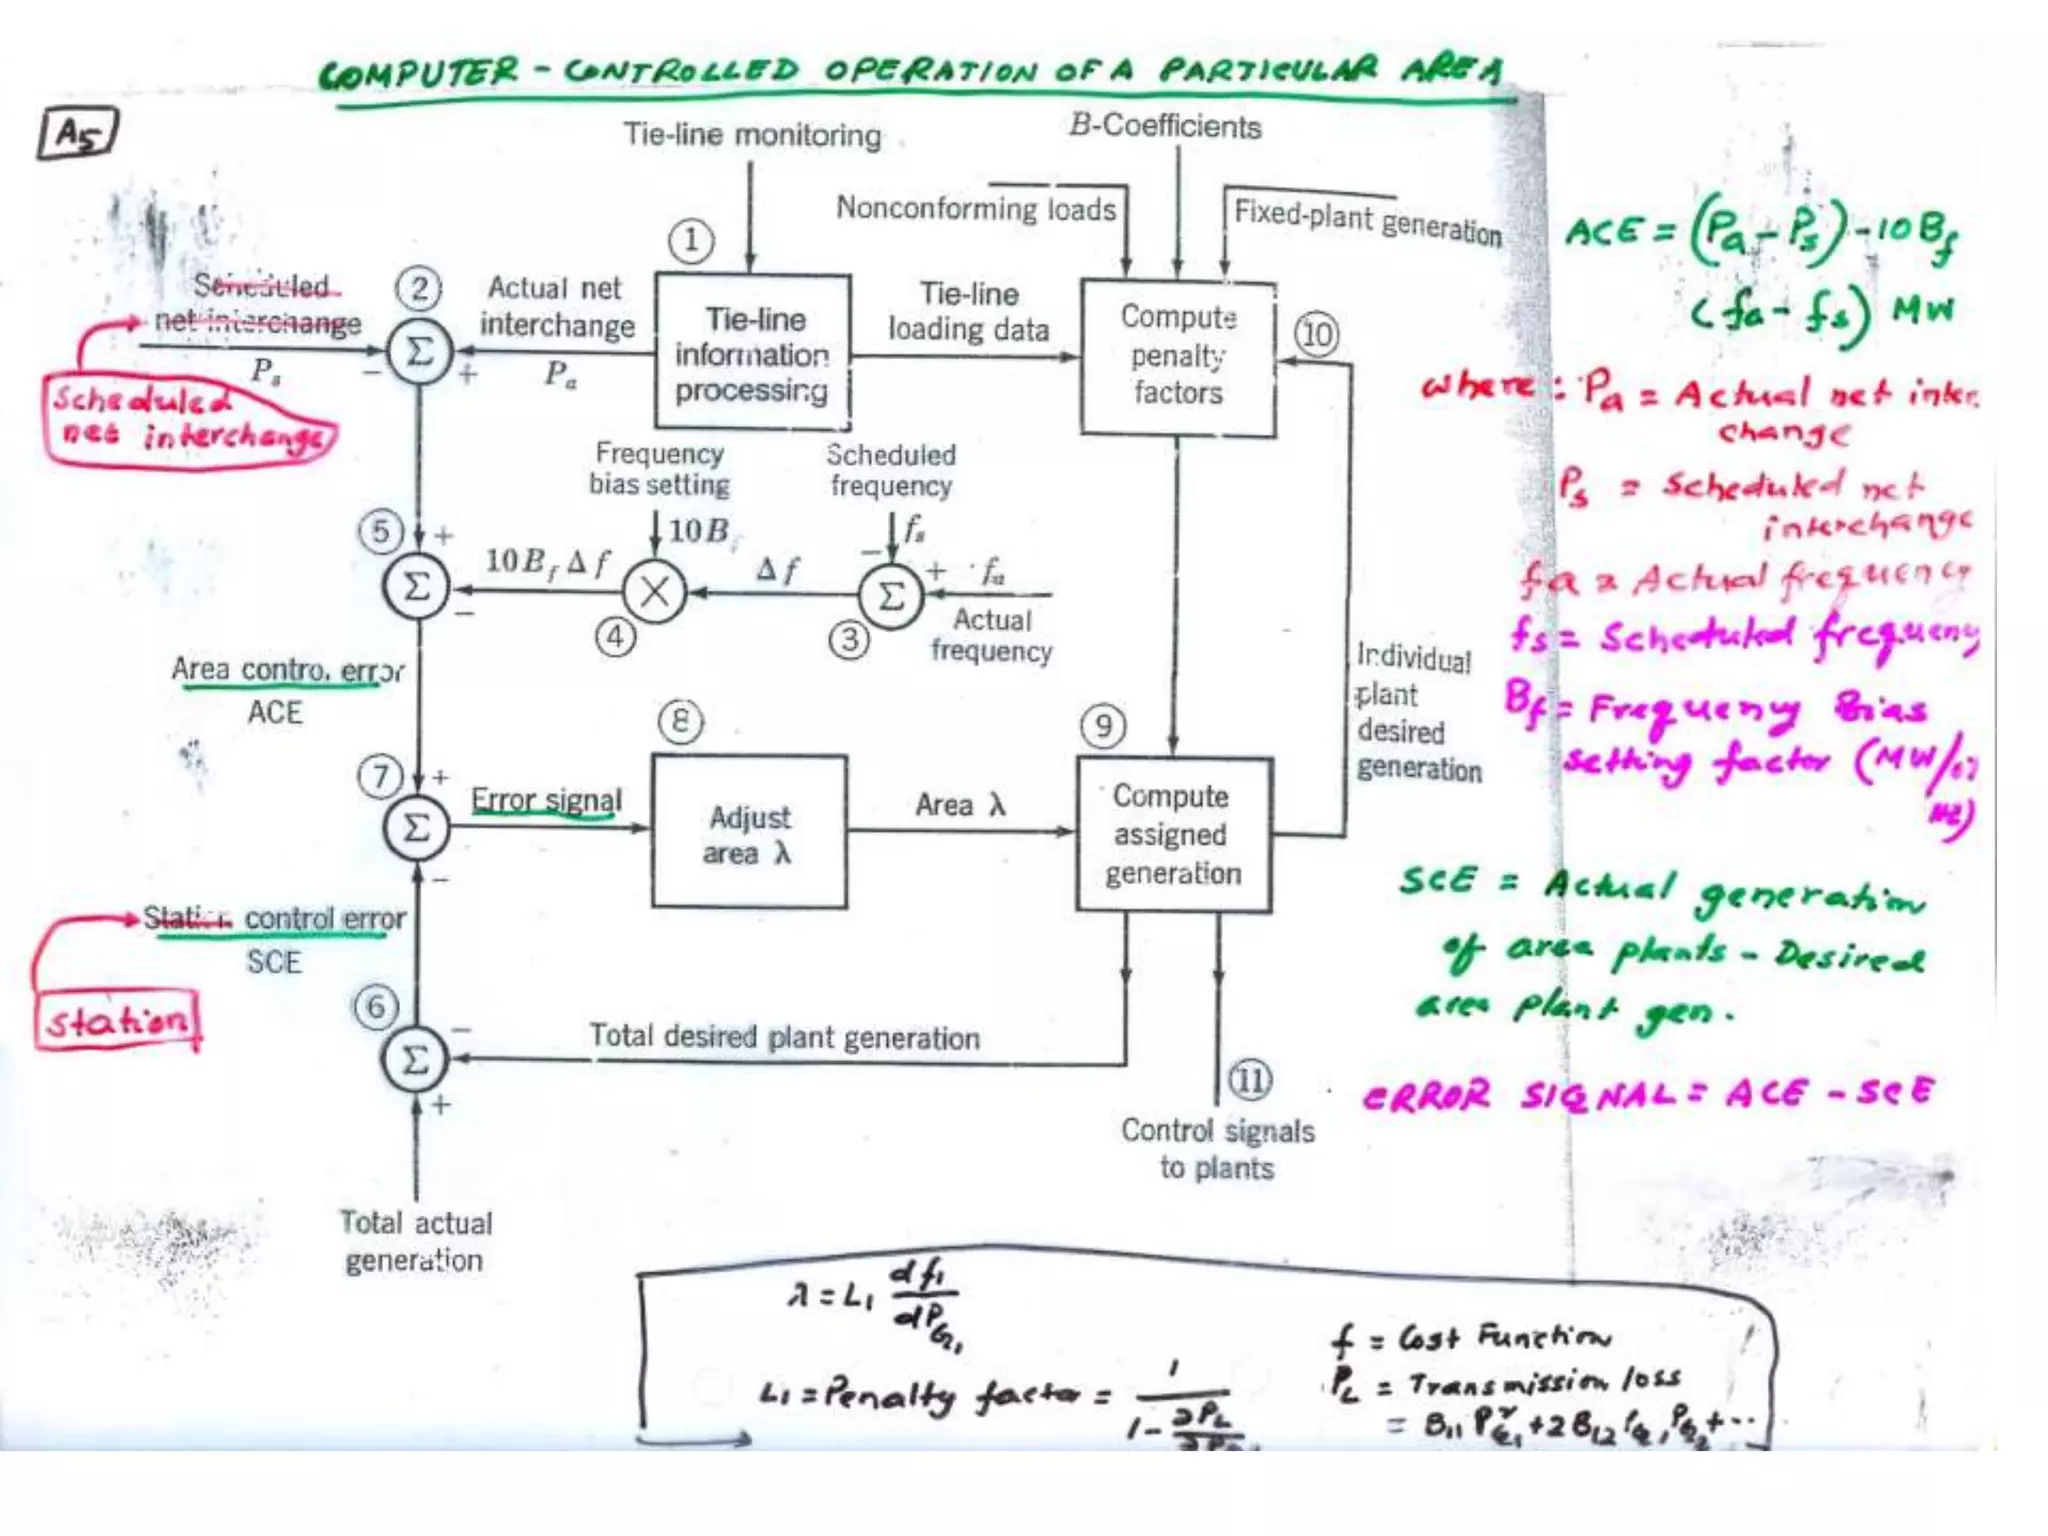 COMPUTER - CONTROLLED OPERATION OF A PARTICULAR AREA
A5
Tie-line monitoring
B-Coefficients
Nonconforming loads
Fixed-plant generation
1
2
Scheduled
net interchange
Ps
−
+
Actual net
interchange
Pa
Σ
Tie-line
information
processing
Tie-line
loading data
Compute
penalty
factors
10
Scheduled
net interchange
Frequency
bias setting
Scheduled
frequency
10Bf
fs
5
+
−
Σ
10Bf Δf
×
4
Δf
−
+
Σ
3
fa
Actual
frequency
Area control error
ACE
Individual
plant
desired
generation
7
+
−
Σ
Error signal
8
Adjust
area λ
Area λ
9
Compute
assigned
generation
Station control error
SCE
station
6
−
+
Σ
Total desired plant generation
11
Control signals
to plants
Total actual
generation
ACE = (Pa - Ps) - 10 Bf
(fa - fs) MW
where : Pa = Actual net inter
change
Ps = Scheduled net
interchange
fa = Actual frequency
fs = Scheduled frequency
Bf = Frequency Bias
setting factor (MW/0.1
Hz)
SCE = Actual generation
of area plants - Desired
area plant gen.
ERROR SIGNAL = ACE - SCE
λ = L1 df1/dPG1
L1 = Penalty factor = 1 / 1 - ∂PL
f = Cost Function
PL = Transmission loss
= B11 P²G1 + 2 B12 PG1 PG2 + ..